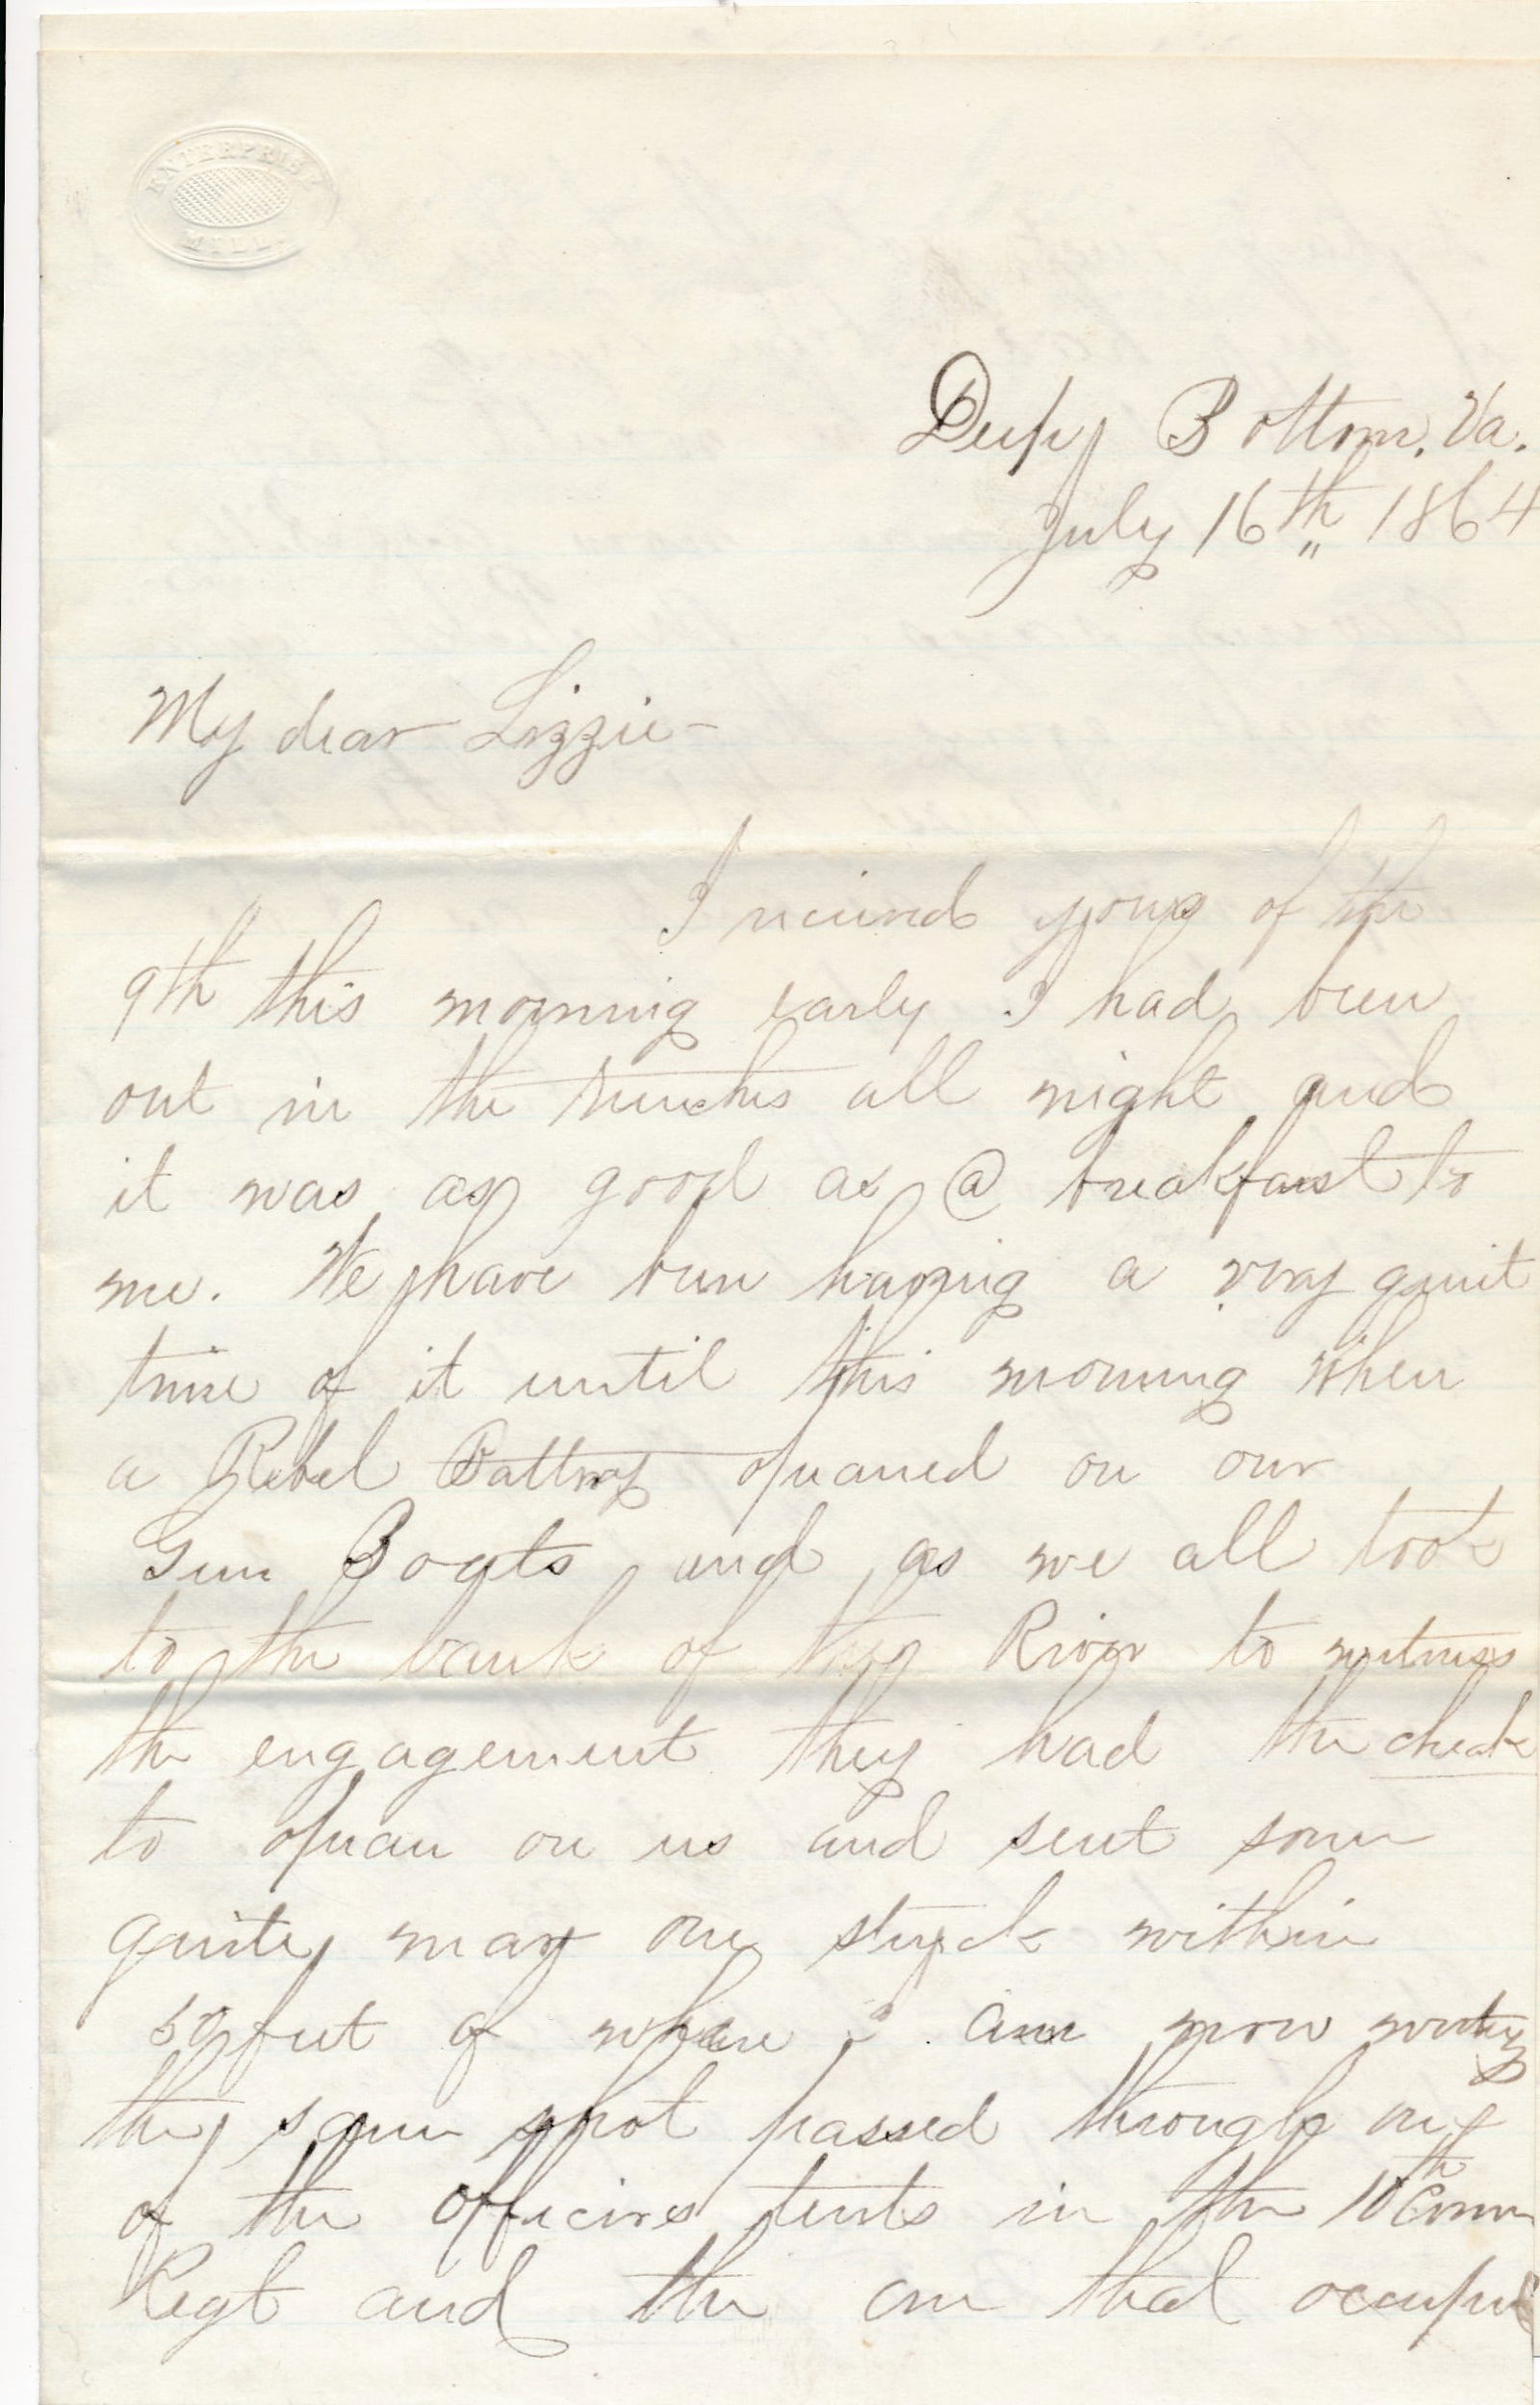 ENTERPRISE
MILL
Deep Bottom. Va.
July 16th 1864
My dear Lizzie-
I received yours of the
9th this morning early I had been
out in the trenches all night and
it was as good as @ breakfast to
me. We have been having a very quiet
time of it until this morning when
a Rebel Battery opeaned on our
Gun Boats and as we all took
to the bank of the River to witness
the engagement they had the cheak
to opean on us and sent some
quite near one struck within
50 feet of whare I am now
the same shot passed through one
of the officires tents in the 10th Conn
Regt and the one that